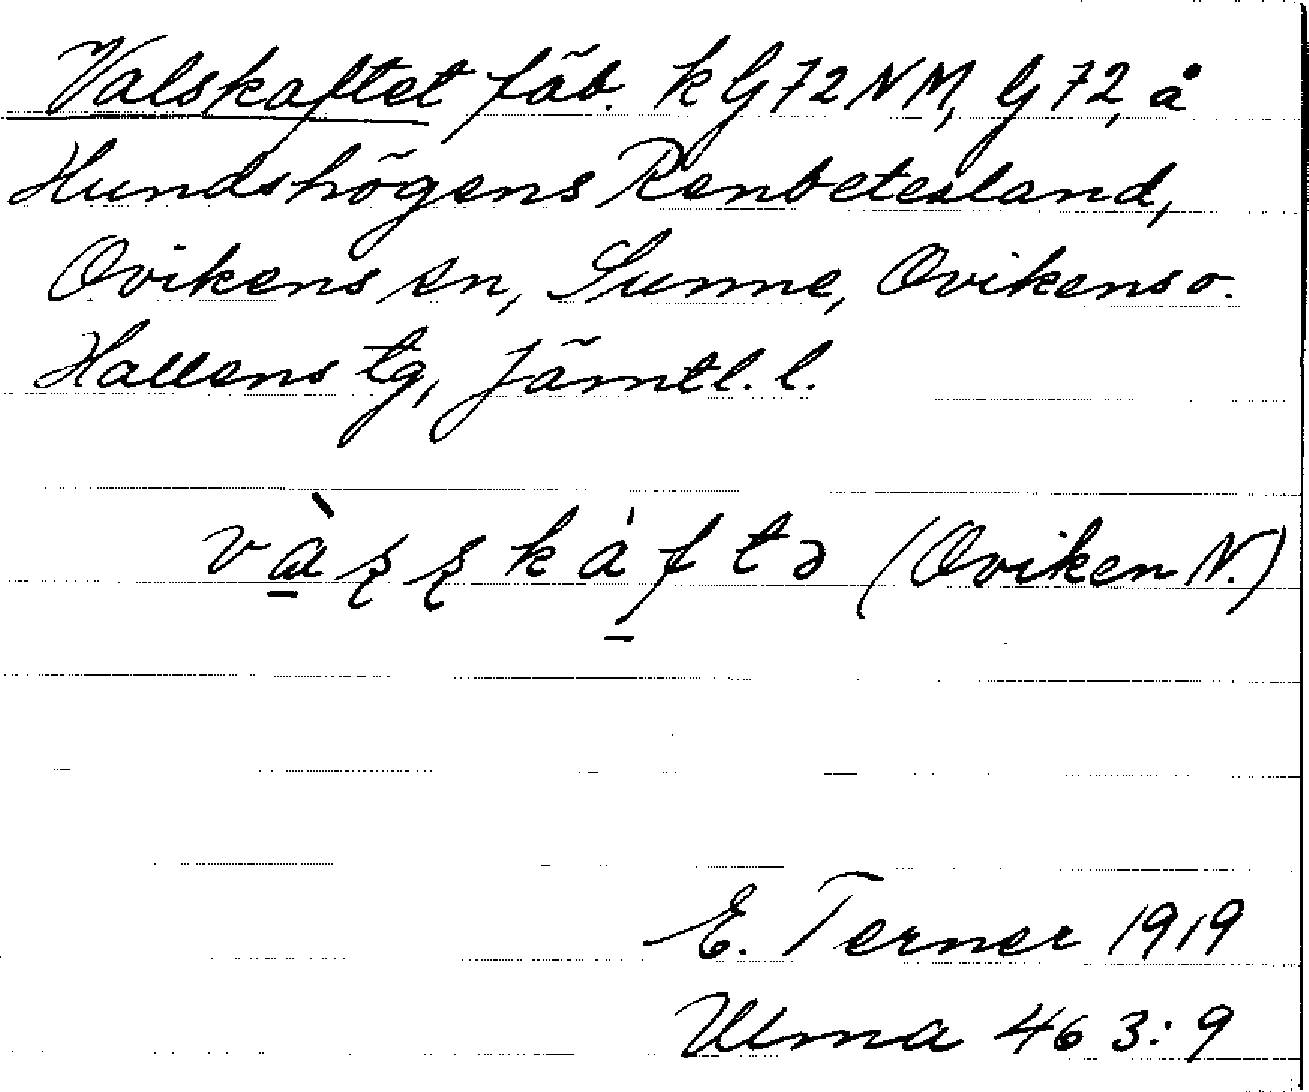 Valskaftet fäb. k G72NM, G72, å
Hundshögens Renbetesland,
Ovikens sn, Sunne, Ovikens o.
Hallens tg, Jämtl. l.
(Oviken N.)
E. Terner 1919
Ulma 463:9